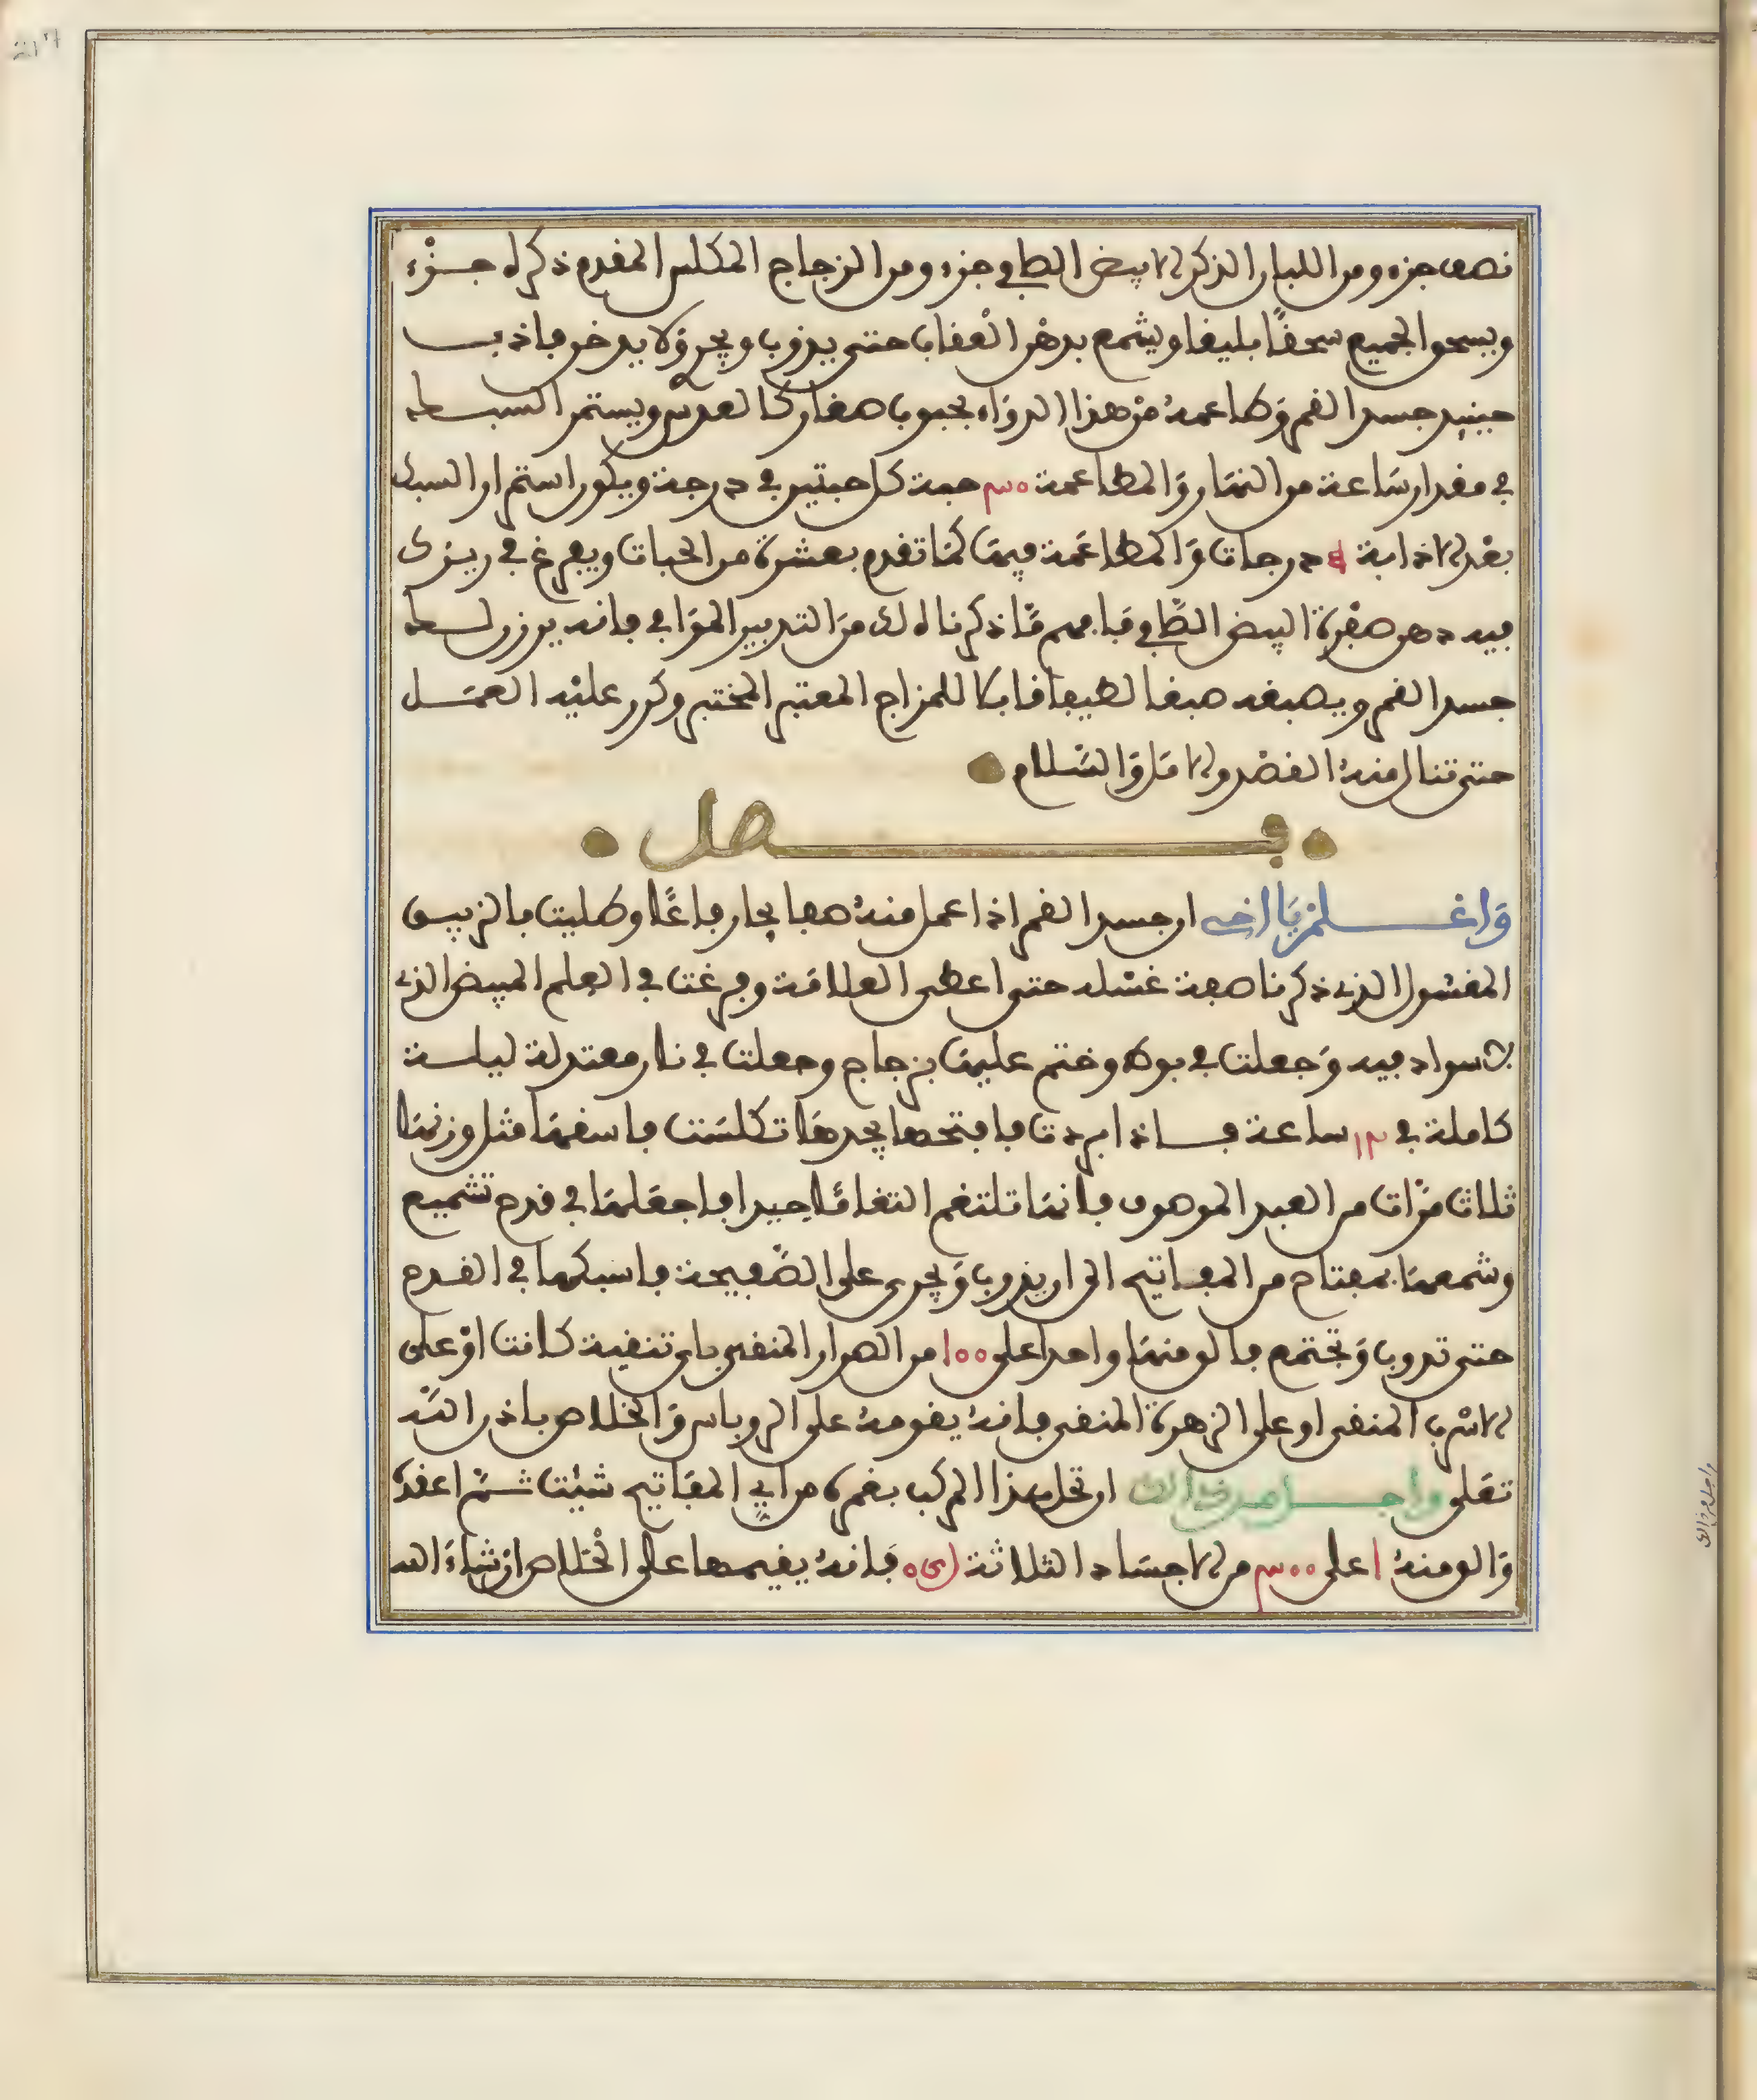 نصف جزء ومن اللبان الذكر الابيض الطافي جزء ومن الزجاج المكلس المقدم ذكره جزء
ويسحق الجميع سحقًا بليغا ويشمع بدهن العقاب حتى يذوب ويجري ولا يدخن فاذب
حينيذ جسد القمر وطاعمه من هذا الدواء بحبوب صغار كالعدس ويستمر السبك
في مقدار ساعة من النهار والمطاعمة ٣٠ حبة كل حبتين في درجة ويكون استمرار السبك
بعد الاذابة درجات والمطاعمة فيها كما تقدم بعشرة من الحبات ويفرغ في ريزك
فيه دهن صفرة البيض الطافي فافهم ما ذكرناه لك من التدبير الموافي فانه يرزن لك
جسد القمر ويصبغه صبغا لطيفا قابلا للمزاج المعتبر المختبر وكرر عليه العمل
حتى تنال منه القصد والامل والسلام
فصل
واعلم يا اخي ان جسد القمر اذا عمل منه صفايح ارفاعًا وطليت بالزيبق
المغسول الذي ذكرنا صفة غسله حتى اعطى العلامة وفرغت في العلم المبيض الذي
لا سواد فيه وجعلت في بوط وختم عليها بزجاج وجعلت في نار معتدلة ليلة
كاملة في ١٢ ساعة فاذا بردت فافتحها تجدها تكلست فاسقها مثل وزنها
ثلاث مرات من العبد الموصوف فانها تلتغم التغامًا جيدا فاجعلها في قدح تشميع
وشمعها بمفتاح من المفاتيح الى ان يذوب ويجري على الصفيحة فاسبكها في القدح
حتى تذوب وتجتمع فالق منها واحدا على ١٠٠ من الصرار المنقى باي تنقية كانت او على
الاسرب المنقى او على الزهرة المنقى فانه يقومه على الروباس والخلاص باذن الله
تعلى واجل من ذالك ان تحل هذا المركب بغمره من اي المفاتيح شيت ثم اعقده
والق منه ١ على ٣٠٠ من الاجساد الثلاثة فانه يقيمها على الخلاص ان شاء الله
واجل من ذالك